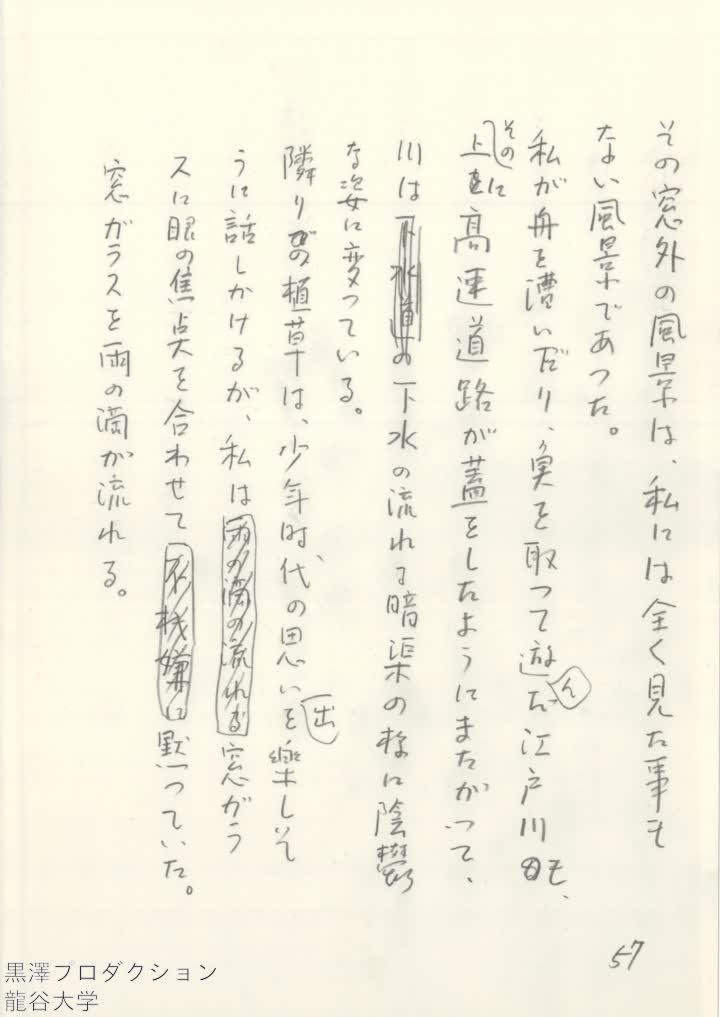 その窓外の風景は、私には全く見た事も
ない風景であつた。
私が舟を漕いだり、魚を取つて遊んだ江戸川も、
その上に高速道路が蓋をしたようにまたがつて、
川は下水の流れる暗渠の様に陰鬱
な姿に変つている。
隣りの植草は、少年時代の思い出を楽しそ
うに話しかけるが、私は雨の滴の流れる窓がラ
スに眼の焦点を合わせて不機嫌に黙つていた。
窓ガラスを雨の滴が流れる。
57
黒澤プロダクション
龍谷大学